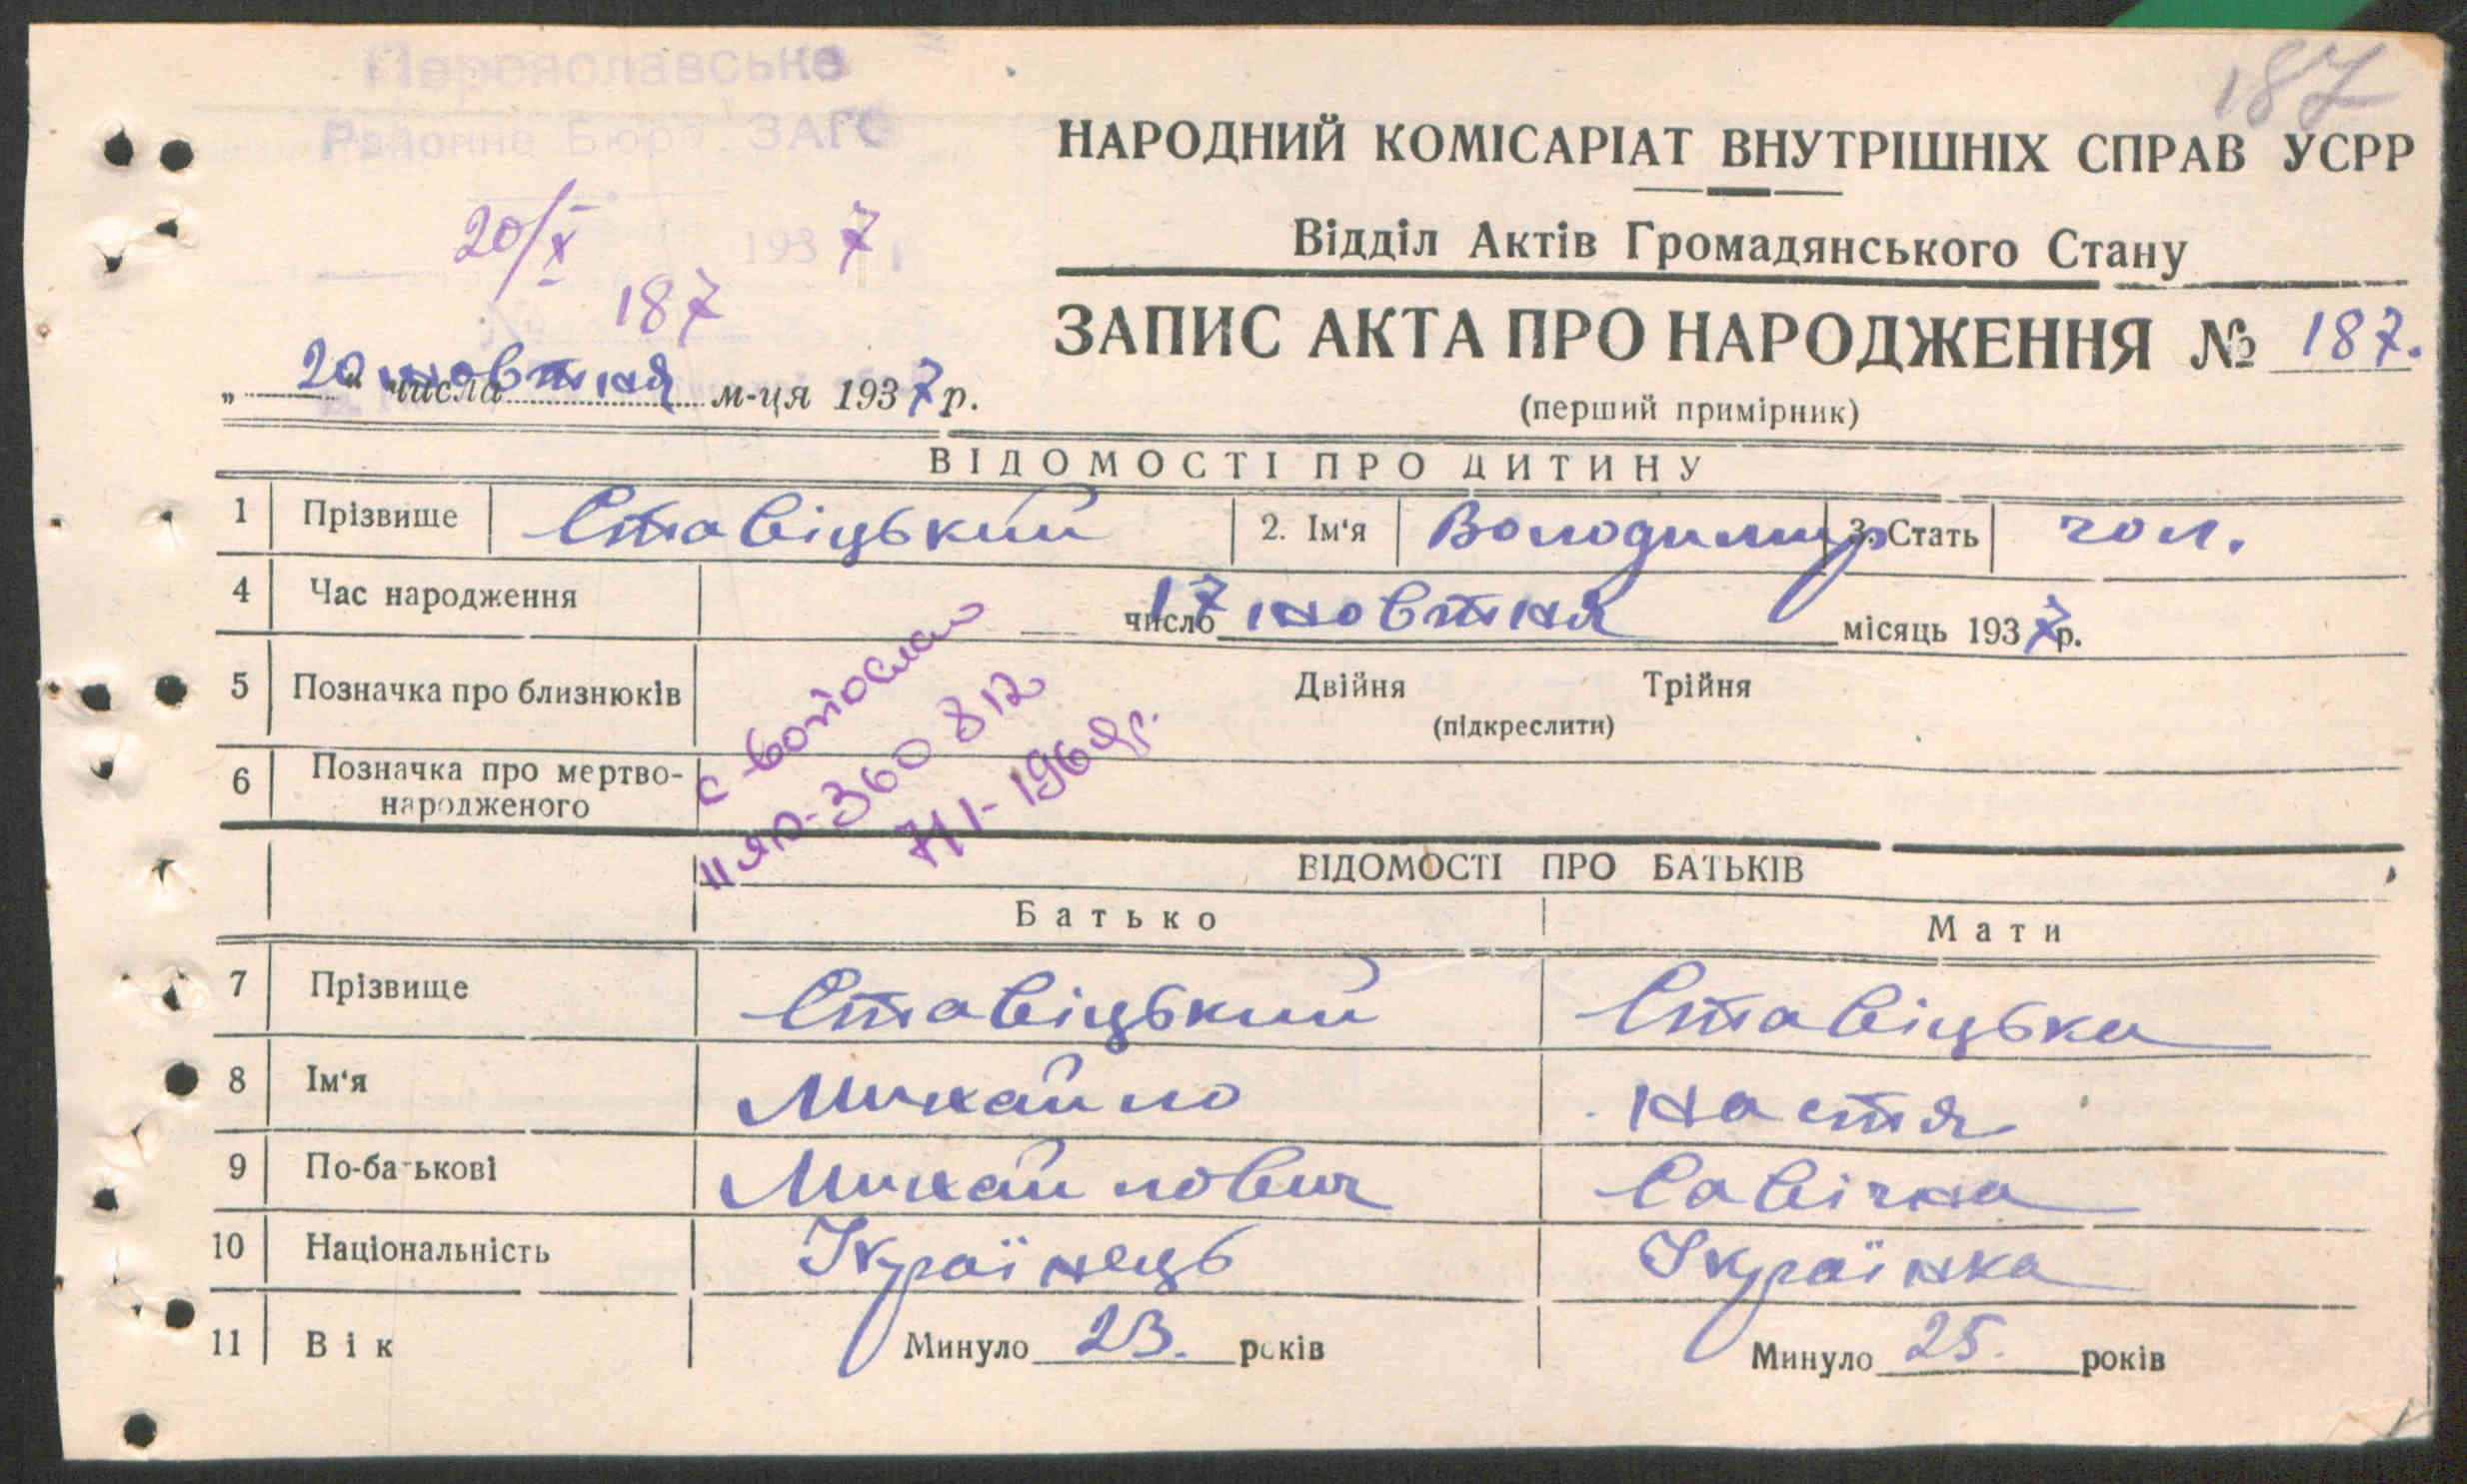 187
Переяславське
Районне Бюро ЗАГС
20/X 1937 р
№ 187
НАРОДНИЙ КОМІСАРІАТ ВНУТРІШНІХ СПРАВ УСРР
Відділ Актів Громадянського Стану
ЗАПИС АКТА ПРО НАРОДЖЕННЯ № 187.
(перший примірник)
„20“ числа жовтня м-ця 1937 р.
ВІДОМОСТІ ПРО ДИТИНУ
1 Прізвище Ставіцький 2. Ім'я Володимир 3. Стать чол.
4 Час народження 17 число жовтня місяць 1937 р.
5 Позначка про близнюків Двійня Трійня
(підкреслити)
6 Позначка про мертво-
народженого
360812
1-196
ВІДОМОСТІ ПРО БАТЬКІВ
Батько Мати
7 Прізвище Ставіцький Ставіцька
8 Ім'я Михайло Настя
9 По-батькові Михайлович Савічна
10 Національність Українець Українка
11 Вік Минуло 23. років Минуло 25. років